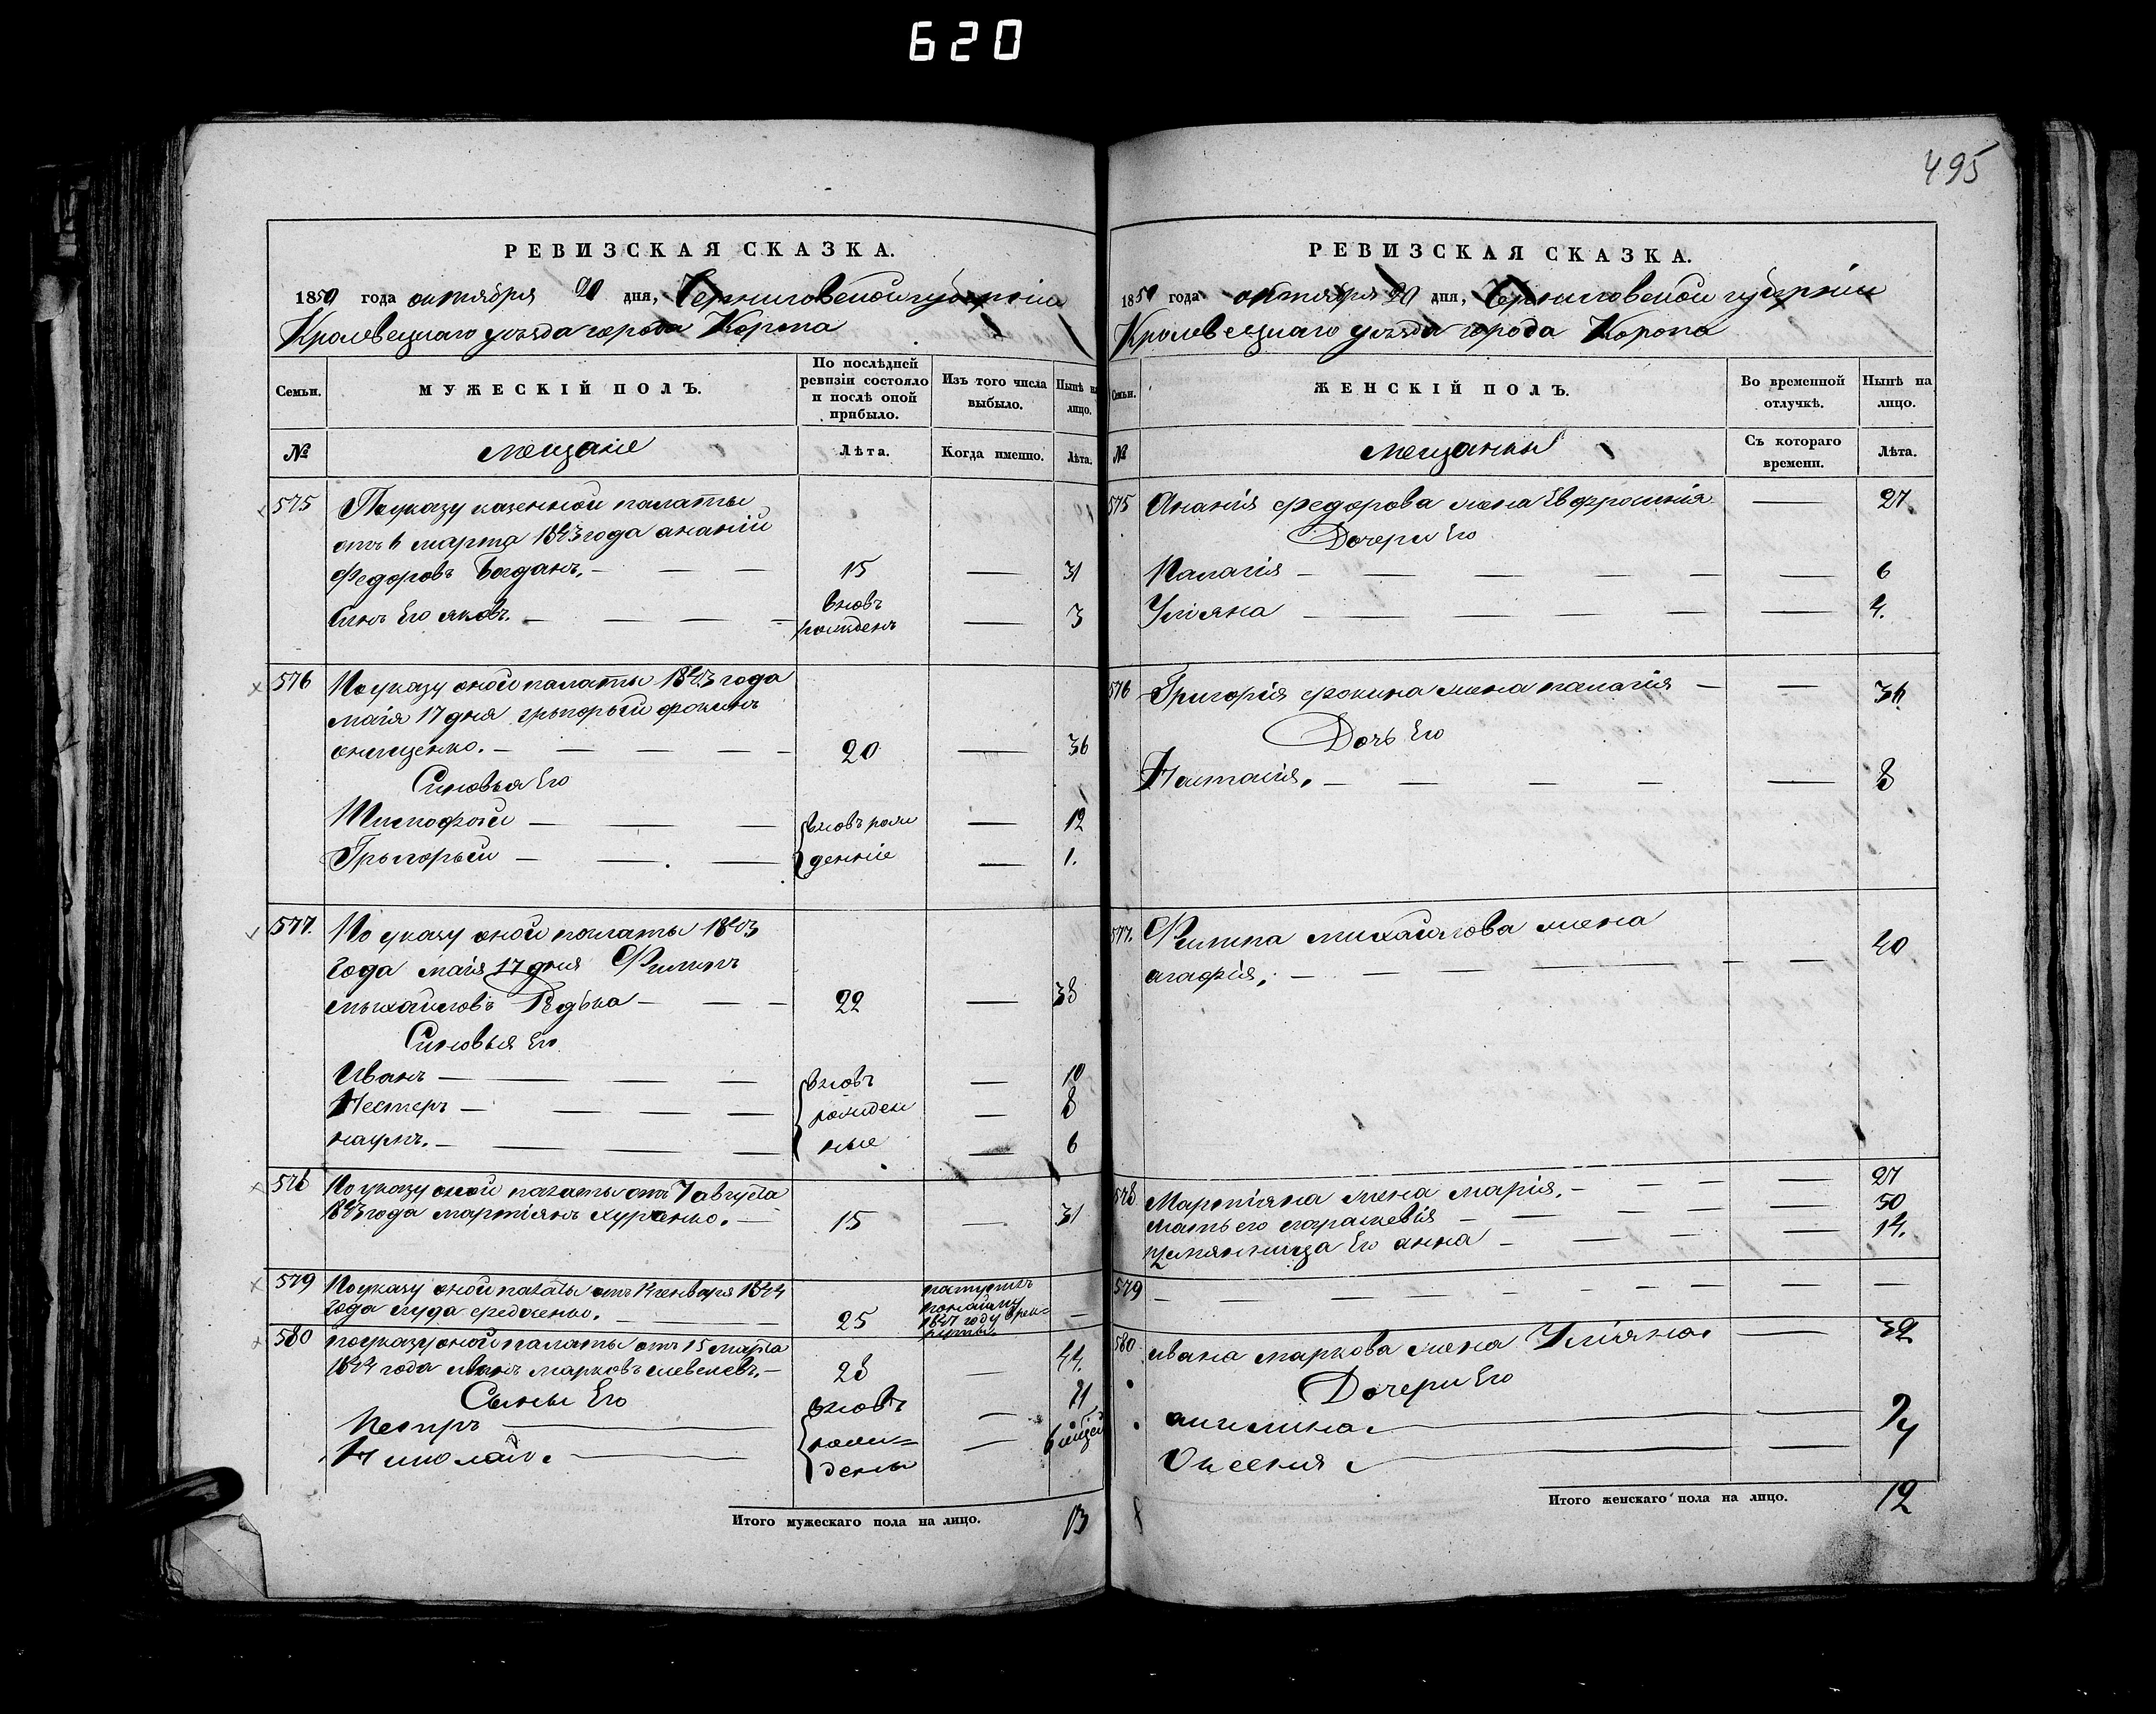 620
495
РЕВИЗСКАЯ СКАЗКА.
1850 года октября 20 дня, Черниговской губерніи
Кролевецкаго уѣзда города Коропа
Семьи.
МУЖЕСКІЙ ПОЛЪ.
По послѣдней ревизіи состояло и послѣ оной прибыло.
Изъ того числа выбыло.
Нынѣ на лицо.
№
мещане
Лѣта.
Когда именно.
Лѣта.
575 По указу казенной палаты
отъ 6 марта 1843 года ананій
Федоровъ Богданъ. 15 31
Синъ Его яковъ. вновь рожденъ 3
576 По указу оной палаты 1843 года
маія 17 дня грыгорый фокинъ
онищенко. 20 36
Синовья Его
12
Грыгорый 1.
вновь рожденніе
577. По указу оной палаты 1843
года маія 17 дня Филипъ
мыхайловъ Редька 22 38
Синовья Его
Иванъ 10
Нестеръ 8
наумъ. 6
вновь рожденные
578 По указу оной палаты отъ 7 августа
1843 года мартіянъ 15 31
579 По указу оной палаты отъ генваря 1844
года 25
1847 году
580 по указу оной палаты отъ 15 марта
1844 года иванъ марковъ 28 44.
Сыны Его
Петръ 11
Николай. 6
вновь рождены
Итого мужескаго пола на лицо. 13
РЕВИЗСКАЯ СКАЗКА.
1850 года октября 20 дня, Черниговской губерніи
Кролевецкаго уѣзда города Коропа
Семьи.
ЖЕНСКІЙ ПОЛЪ.
Во временной отлучкѣ.
Нынѣ на лицо.
№
мещанкы
Съ котораго времени.
Лѣта.
575 Ананія Федорова жена Евфросинія 27
Дочери Его
Палагія 6
Уліяна 4.
576 Григорія фокина жена палагія 36
Дочь Его
Настасія. 8
577. Филипа михайлова жена
агафія. 40
578 Мартіяна жена марія. 27
мать его параскевія 50
Его анна 14.
579
580 ивана маркова жена Уліяна. 32
Дочери Его
ангилина. 9
Оксения 4
Итого женскаго пола на лицо. 12